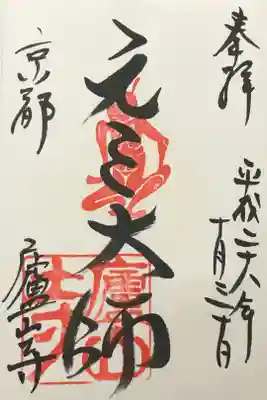 奉拝
平成二十六年
十月三十日
元三大師
京都
廬山寺